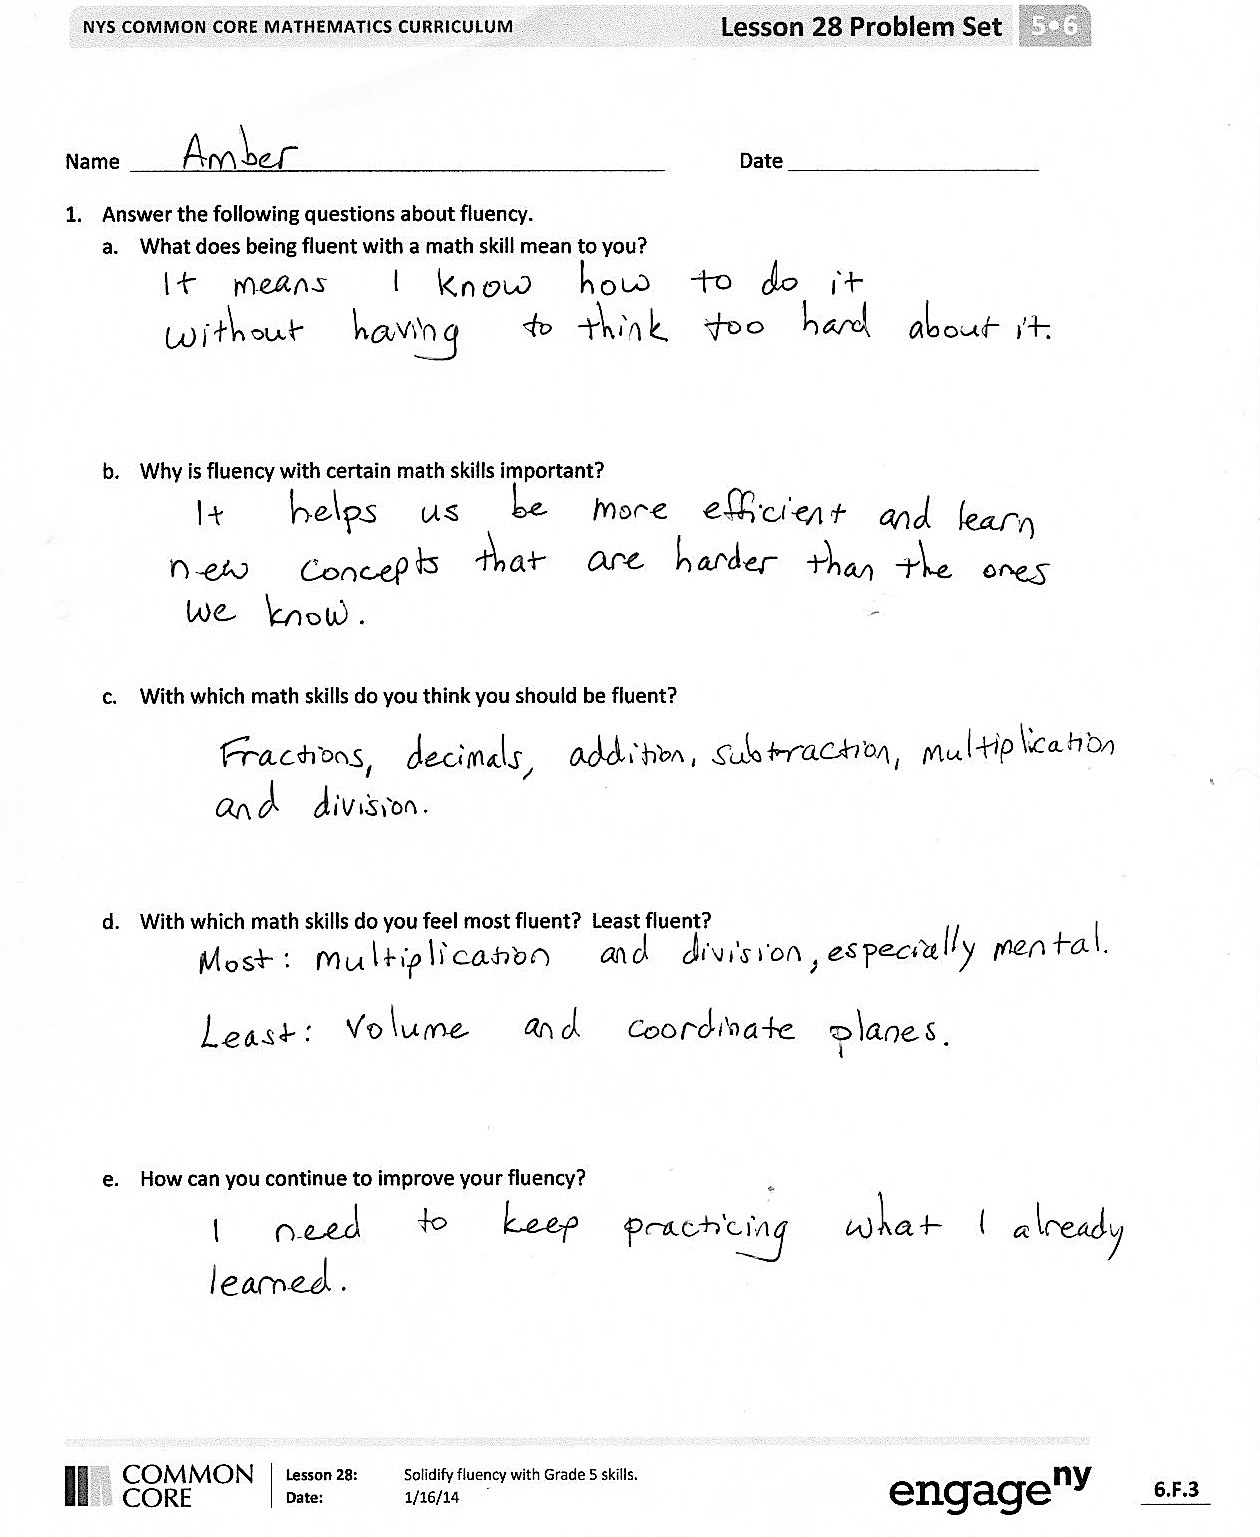 NYS COMMON CORE MATHEMATICS CURRICULUM Lesson 28 Problem Set 5•6
Name Amber Date
1. Answer the following questions about fluency.
a. What does being fluent with a math skill mean to you?
It means I know how to do it
without having to think too hard about it.
b. Why is fluency with certain math skills important?
It helps us be more efficient and learn
new concepts that are harder than the ones
we know.
c. With which math skills do you think you should be fluent?
Fractions, decimals, addition, subtraction, multiplication
and division.
d. With which math skills do you feel most fluent? Least fluent?
Most: multiplication and division, especially mental.
Least: Volume and coordinate planes.
e. How can you continue to improve your fluency?
I need to keep practicing what I already
learned.
COMMON CORE
Lesson 28: Solidify fluency with Grade 5 skills.
Date: 1/16/14
engageny
6.F.3